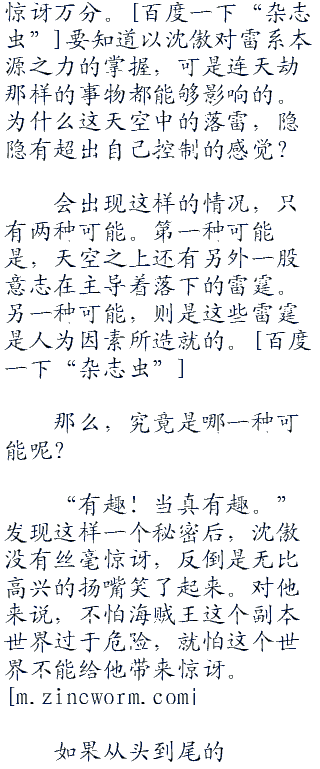 惊讶万分。[百度一下“杂志
虫”]要知道以沈傲对雷系本
源之力的掌握，可是连天劫
那样的事物都能够影响的。
为什么这天空中的落雷，隐
隐有超出自己控制的感觉？
会出现这样的情况，只
有两种可能。第一种可能
是，天空之上还有另外一股
意志在主导着落下的雷霆。
另一种可能，则是这些雷霆
是人为因素所造就的。[百度
一下“杂志虫”]
那么，究竟是哪一种可
能呢？
“有趣！当真有趣。”
发现这样一个秘密后，沈傲
没有丝毫惊讶，反倒是无比
高兴的扬嘴笑了起来。对他
来说，不怕海贼王这个副本
世界过于危险，就怕这个世
界不能给他带来惊讶。
[m.zincworm.com]
如果从头到尾的